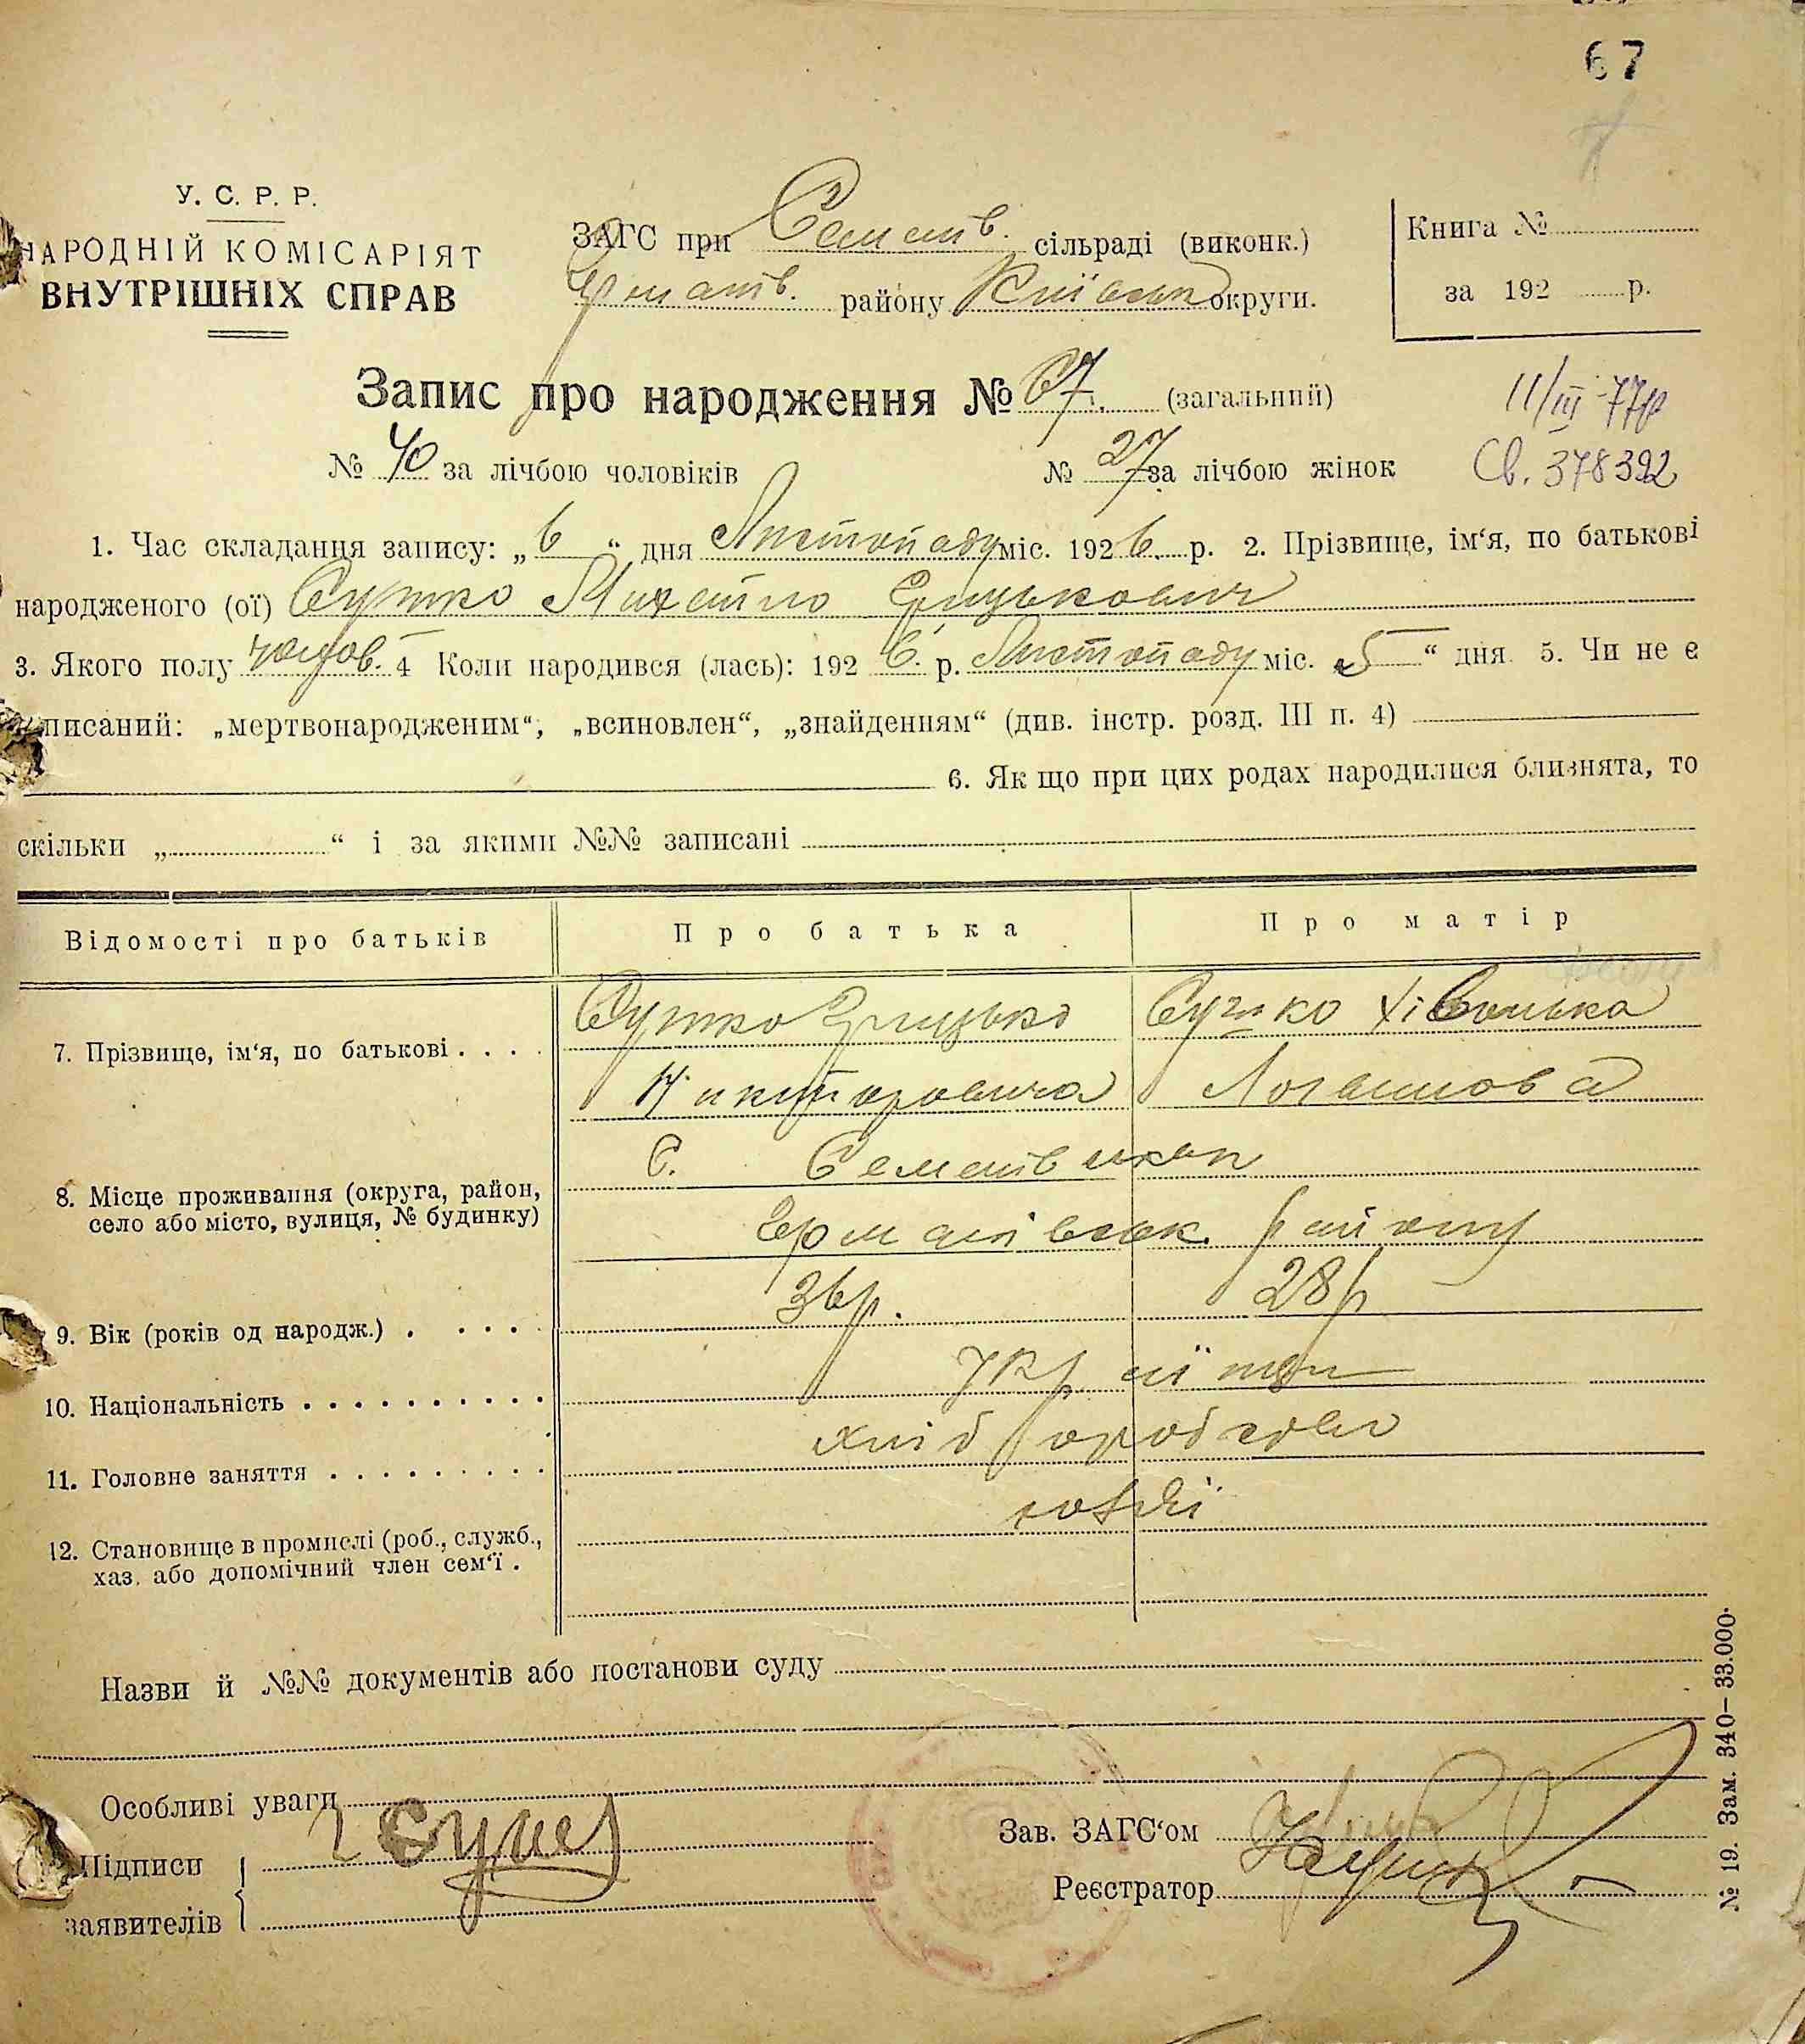 67
У. С. Р. Р.
НАРОДНІЙ КОМІСАРІЯТ
ВНУТРІШНІХ СПРАВ
ЗАГС при Семенів. сільраді (виконк.)
району Київськ округи.
Книга №
за 192 р.
Запис про народження № 67. (загальний)
11/III-77р
№ 40 за лічбою чоловіків № 27 за лічбою жінок
Св. 378392
1. Час складання запису: „6“ дня Листопаду міс. 1926. р. 2. Прізвище, ім‘я, по батькові
народженого (ої) Сутко Михайло Грицькович
3. Якого полу чолов. 4 Коли народився (лась): 192 6. р. Листопаду міс. „5“ дня 5. Чи не є
писаний: „мертвонародженим“, „всиновлен“, „знайденням“ (див. інстр. розд. III п. 4)
6. Як що при цих родах народилися близнята, то
скільки „ “ і за якими №№ записані
Відомості про батьків Про батька Про матір
7. Прізвище, ім‘я, по батькові . . . . Сутко Грицько Сутко
8. Місце проживання (округа, район, село або місто, вулиця, № будинку) С.
району
9. Вік (років од народж.) . . . . . 36р. 28р
10. Національність . . . . . . . . . .
11. Головне заняття . . . . . . . . . хліборобство
12. Становище в промислі (роб., служб.,
хаз. або допомічний член сем‘ї .
Назви й №№ документів або постанови суду
Особливі уваги
Підписи
заявителів
Зав. ЗАГС‘ом
Реєстратор
№ 19. Зам. 340—33.000.